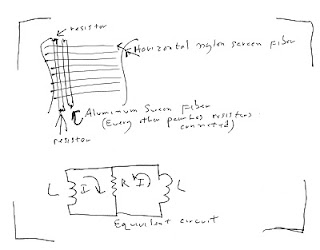 resistor
Horizontal nylon screen fiber
Aluminum Screen fiber
(Every other pair has resistors
connected)
resistor
L I R I L
Equivilent circuit